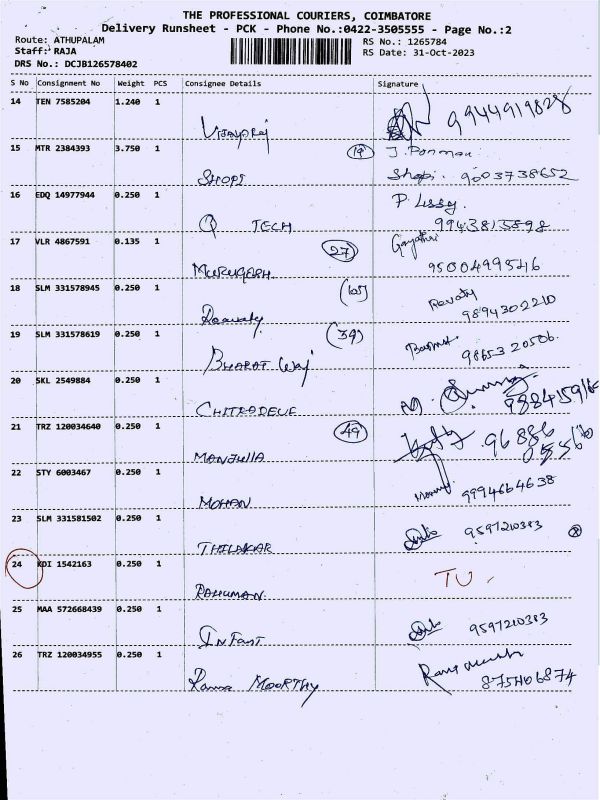 THE PROFESSIONAL COURIERS, COIMBATORE
Delivery Runsheet - PCK - Phone No.:0422-3505555 - Page No.:2
Route: ATHUPALAM
Staff: RAJA
DRS No.: DCJB126578402
RS No.: 1265784
RS Date: 31-Oct-2023
S No Consignment No Weight PCS Consignee Details Signature
14 TEN 7585204 1.240 1 9944919828
15 MTR 2384393 3.750 1 SHOPI 19 Shopi. 9003738652
16 EDQ 14977944 0.250 1 Q TECH P. Lissy. 9943815898
17 VLR 4867591 0.135 1 MURUGESH 27 Gayathri 9500499546
18 SLM 331578945 0.250 1 Revathy 9894302210
19 SLM 331578619 0.250 1 BHARAT (39) 9865320506.
20 SKL 2549884 0.250 1 CHITRADEVE
21 TRZ 120034640 0.250 1 MANJULLA 49 96886
22 STY 6003467 0.250 1 MOHAN 9994664638
23 SLM 331581502 0.250 1 THILAKAR 9597210383
24 KDI 1542163 0.250 1 RAHUMAN. TU.
25 MAA 572668439 0.250 1 INFANT 9597210383
26 TRZ 120034955 0.250 1 Rama MOORTHY